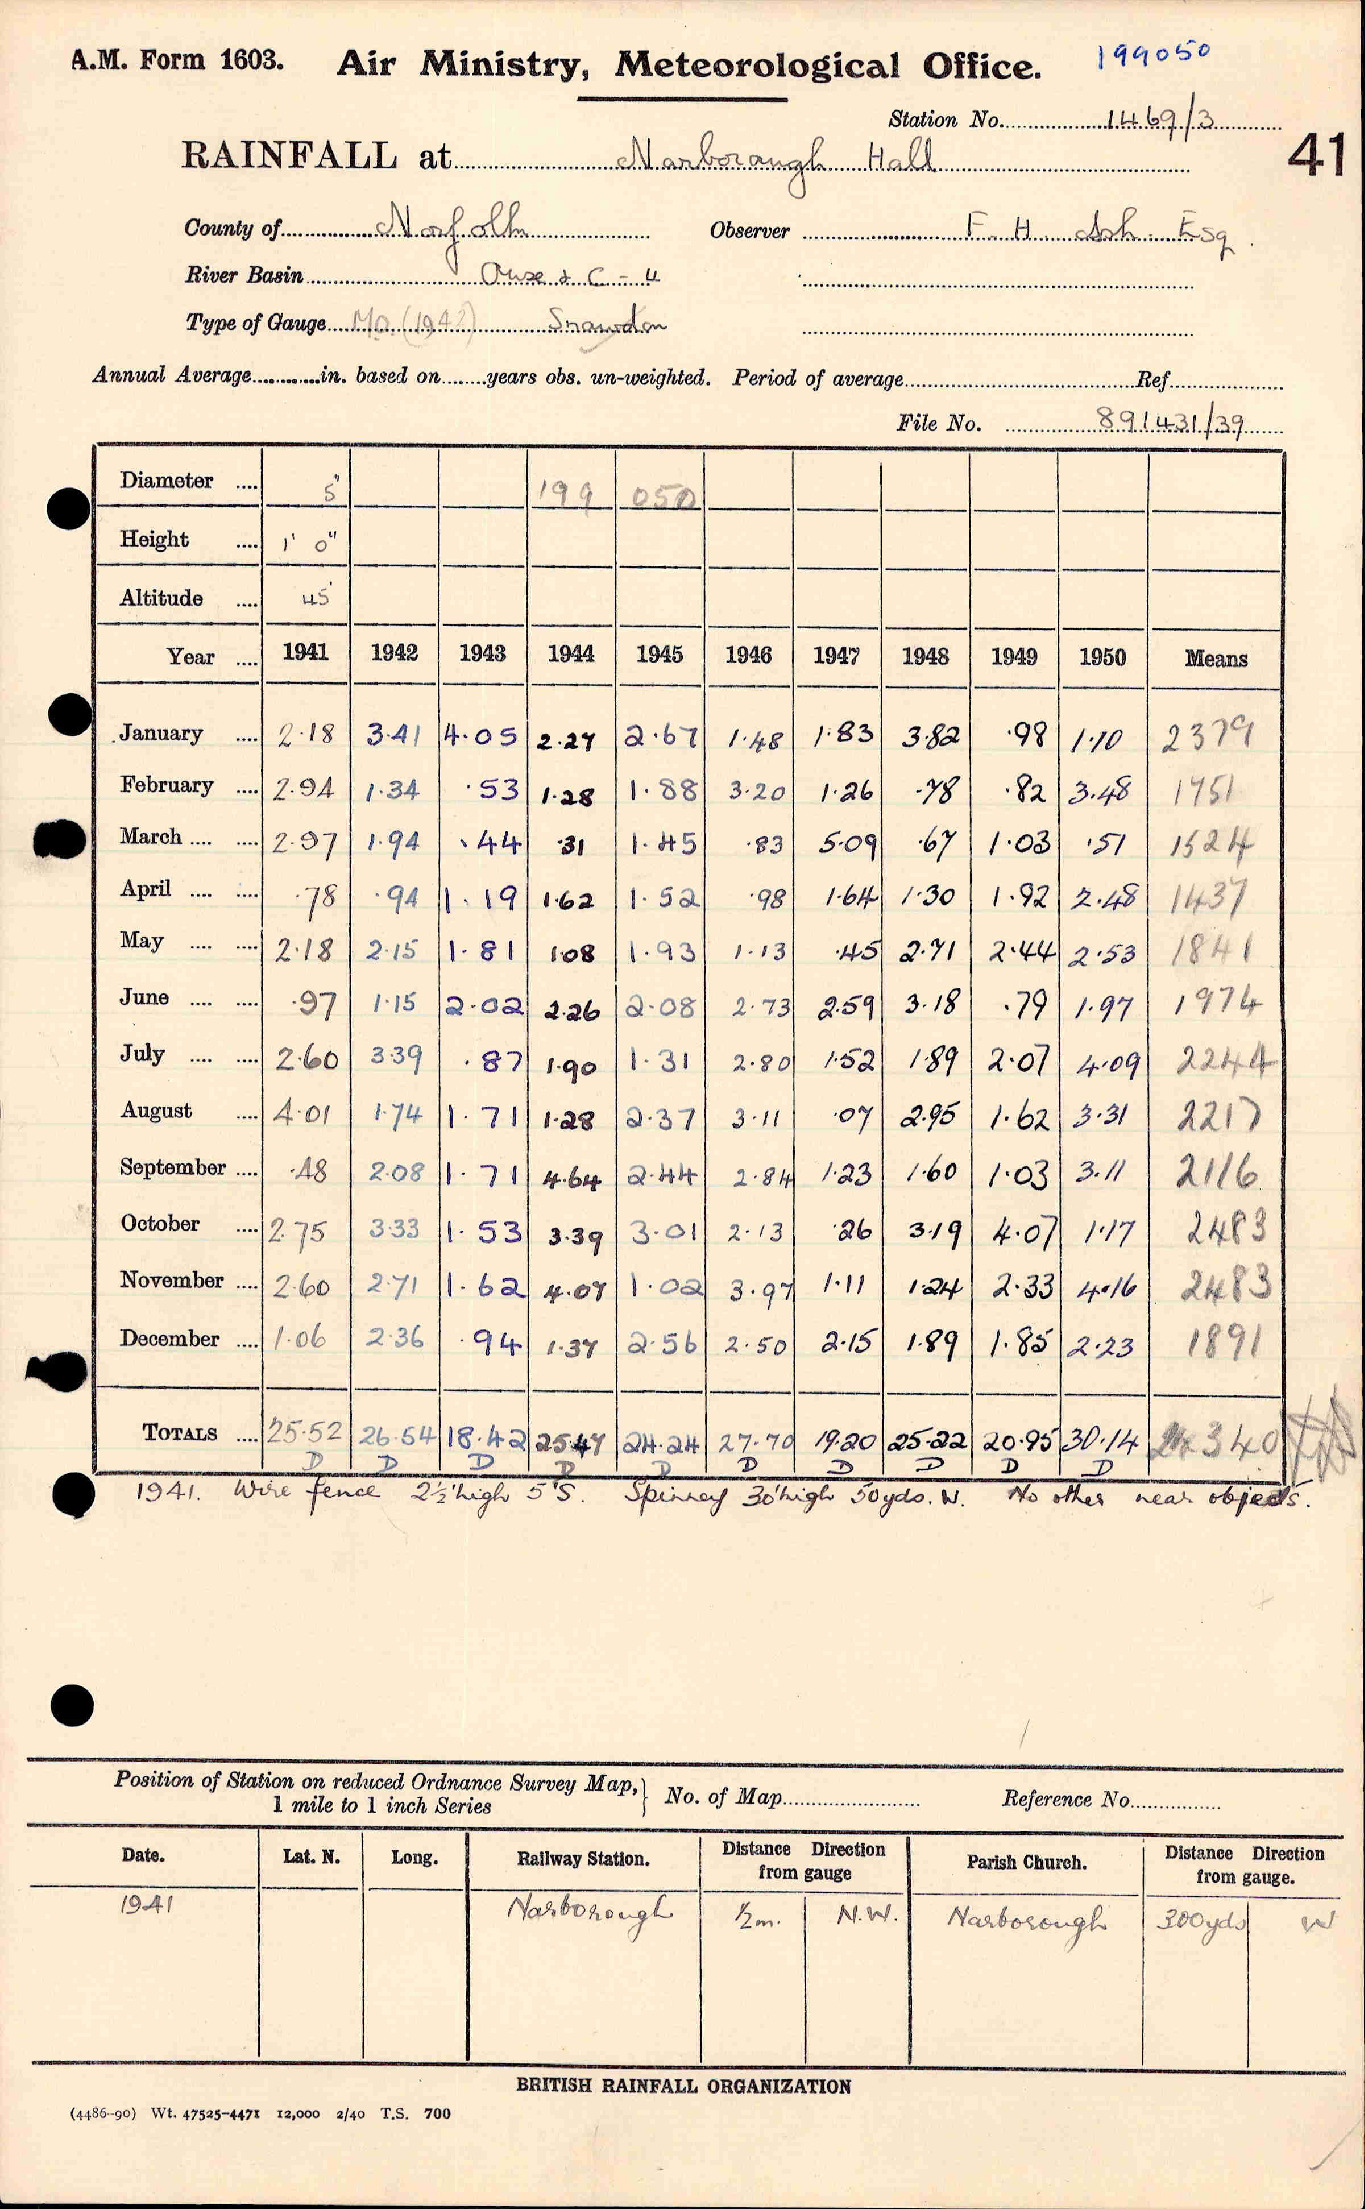 A.M. Form 1603. Air Ministry, Meteorological Office. 199050
Station No. 1469/3
RAINFALL at Narborough Hall 41
County of Norfolk Observer F. H. Ash Esq.
River Basin Ouse & C - 4
Type of Gauge Mo. (1942) Snowdon
Annual Average in. based on years obs. un-weighted. Period of average Ref
File No. 891431/39
Diameter 5" 199 050
Height 1' 0"
Altitude 45'
Year 1941 1942 1943 1944 1945 1946 1947 1948 1949 1950 Means
January 2.18 3.41 4.05 2.27 2.67 1.48 1.83 3.82 .98 1.10 2379
February 2.94 1.34 .53 1.28 1.88 3.20 1.26 .78 .82 3.48 1751
March 2.97 1.94 .44 .31 1.45 .83 5.09 .67 1.03 .51 1524
April .78 .94 1.19 1.62 1.52 .98 1.64 1.30 1.92 2.48 1437
May 2.18 2.15 1.81 1.08 1.93 1.13 .45 2.71 2.44 2.53 1841
June .97 1.15 2.02 2.26 2.08 2.73 2.59 3.18 .79 1.97 1974
July 2.60 3.39 .87 1.90 1.31 2.80 1.52 1.89 2.07 4.09 2244
August 4.01 1.74 1.71 1.28 2.37 3.11 .07 2.95 1.62 3.31 2217
September .48 2.08 1.71 4.64 2.44 2.84 1.23 1.60 1.03 3.11 2116
October 2.75 3.33 1.53 3.39 3.01 2.13 .26 3.19 4.07 1.17 2483
November 2.60 2.71 1.62 4.07 1.02 3.97 1.11 1.24 2.33 4.16 2483
December 1.06 2.36 .94 1.37 2.56 2.50 2.15 1.89 1.85 2.23 1891
TOTALS 25.52 26.54 18.42 25.47 24.24 27.70 19.20 25.22 20.95 30.14 24340
D D D D D D D D D D
1941. Wire fence 2½' high 5' S. Spinney 30' high 50yds. W. No other near objects.
Position of Station on reduced Ordnance Survey Map, 1 mile to 1 inch Series } No. of Map Reference No.
Date. Lat. N. Long. Railway Station. Distance Direction from gauge Parish Church. Distance Direction from gauge.
1941 Narborough ½m. N.W. Narborough 300yds W
BRITISH RAINFALL ORGANIZATION
(4486-90) Wt. 47525-4471 12,000 2/40 T.S. 700